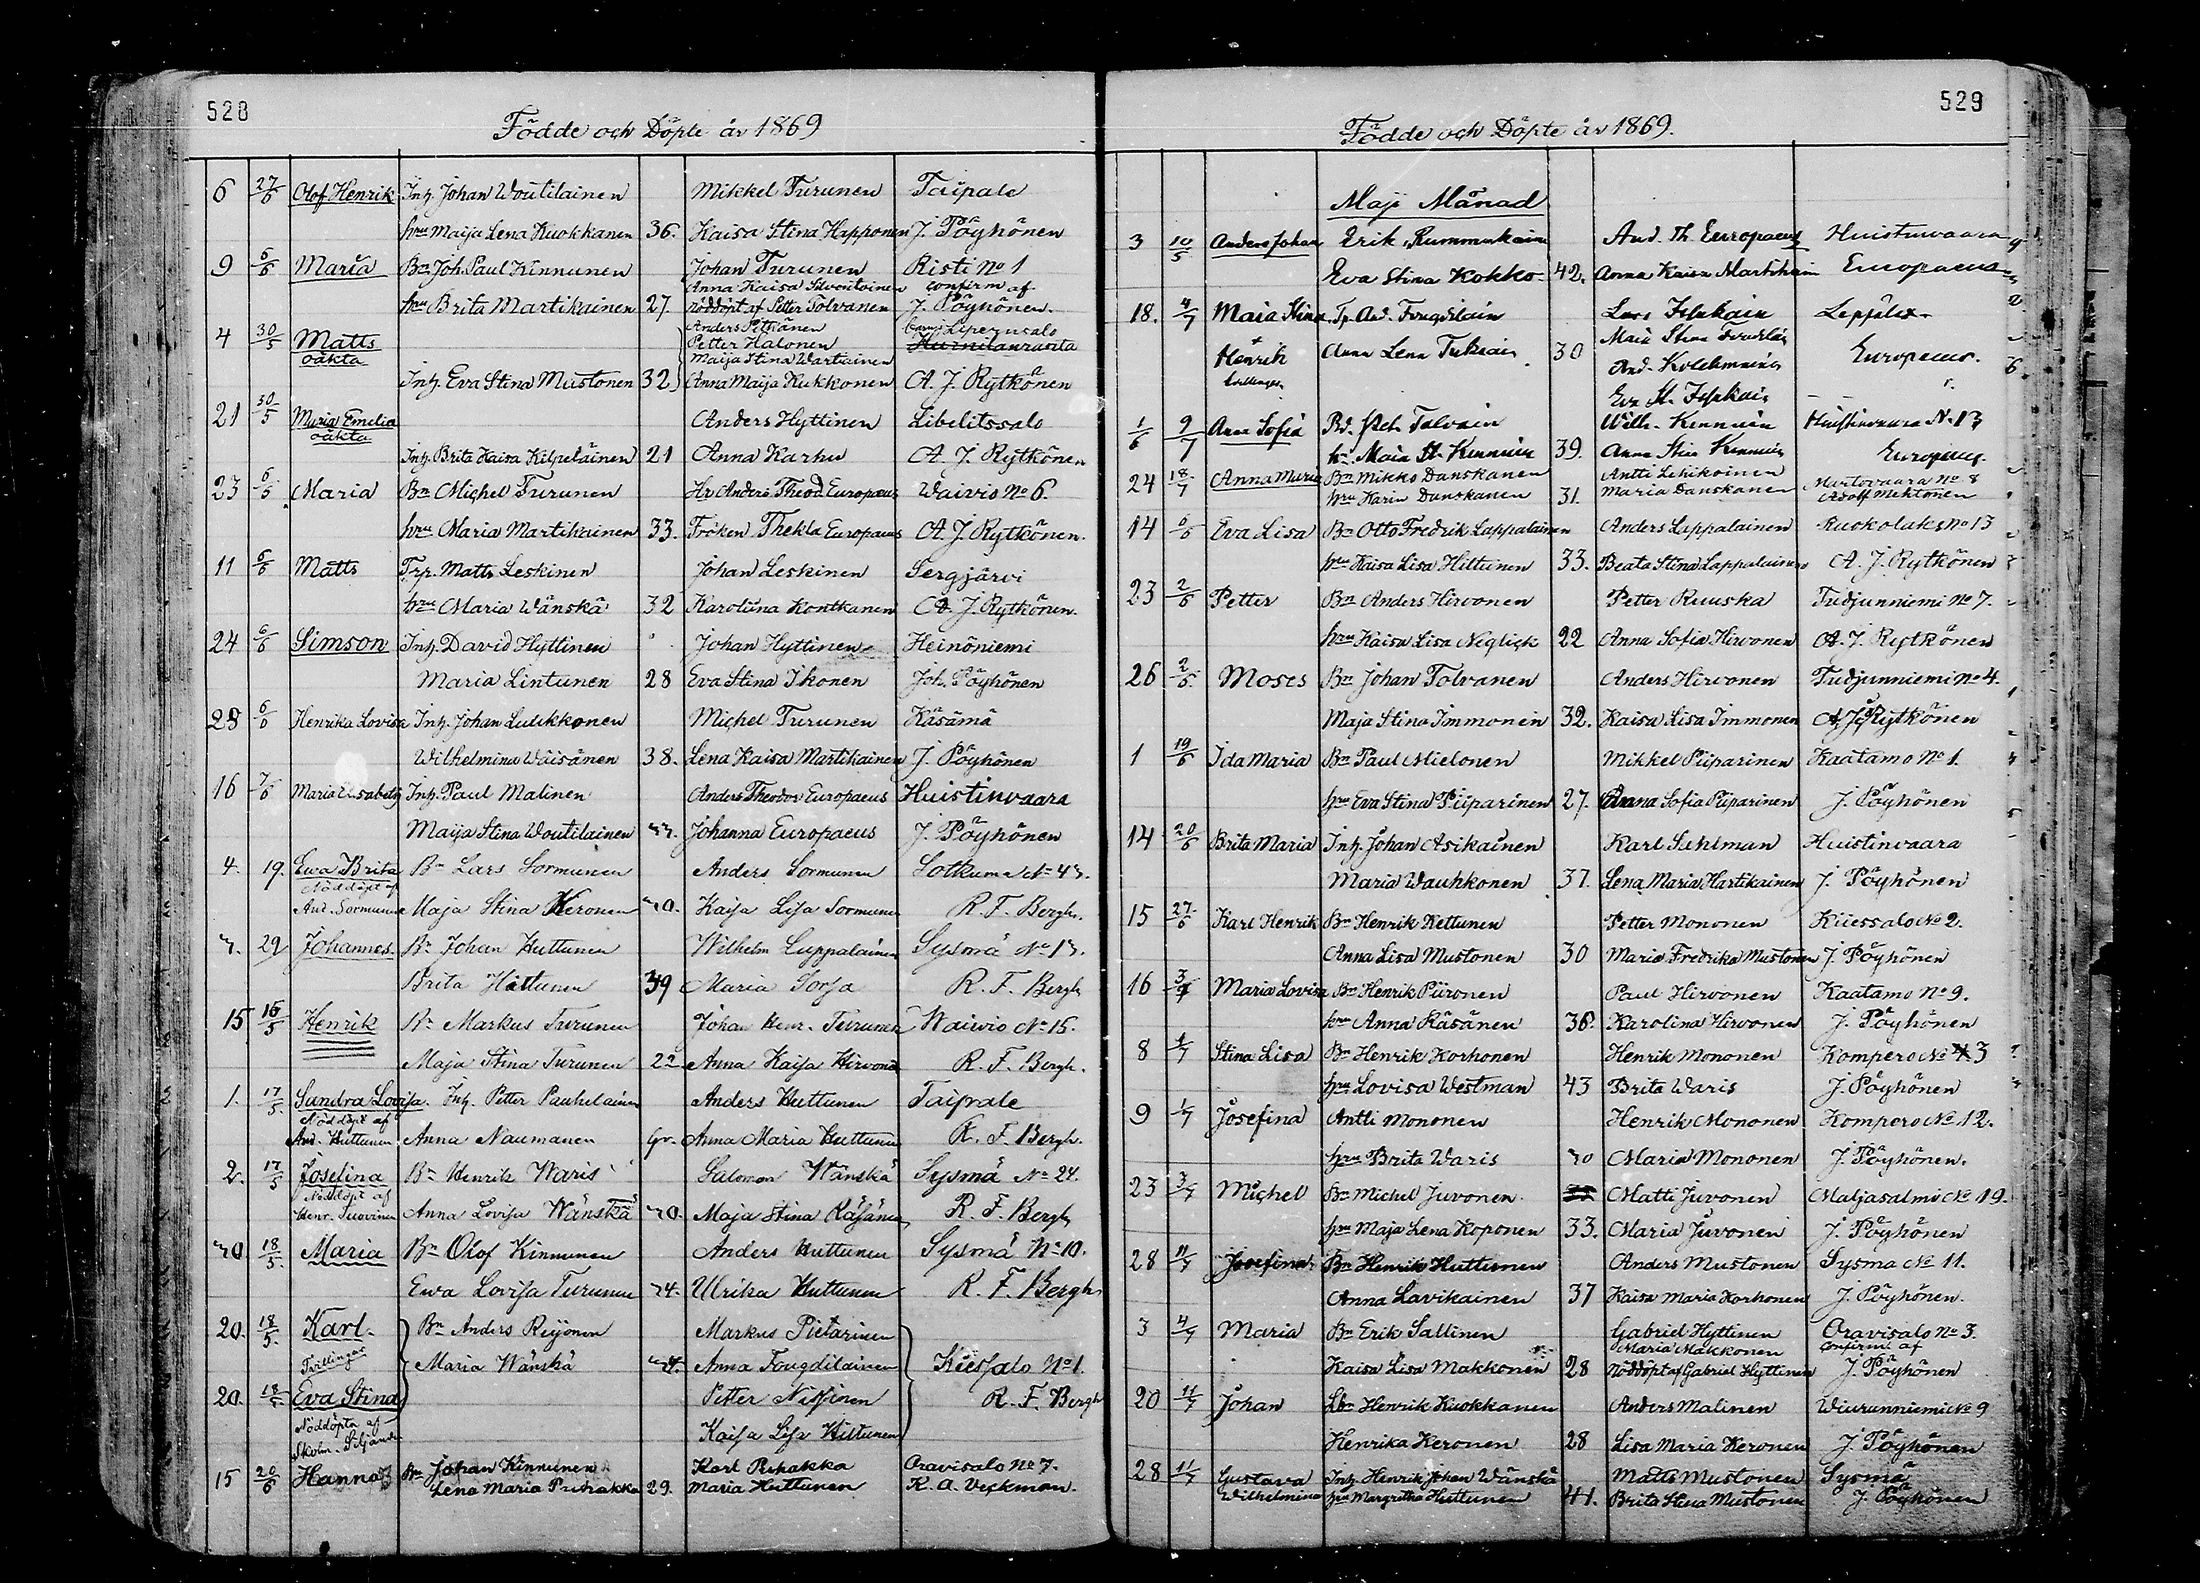 528
Födde och Döpte år 1869
6 27/6 Olof Henrik Inh. Johan Woutilainen Mikkel Turunen Taipale
hru Maija Lena Kuokkanen 36. Kaisa Stina Happonen J. Pöyhönen
9 6/6 Maria Bn Joh. Paul Kinnunen Johan Turunen Risti No 1
Anna Kaisa Silvontoinen confirm af
hru Brita Martikainen 27. nöddöpt af Petter Tolvanen J. Pöyhönen.
4 30/5 Matts Anders Pitkänen Liperinsalo
oäkta Petter Halonen
Maija Stina Wartiainen
Inh. Eva Stina Mustonen 32 Anna Maija Kukkonen A. J. Rytkönen
21 30/5 Maria Emelia Anders Hyttinen Libelitssalo
oäkta
Inh. Brita Kaisa Kilpeläinen 21 Anna Karhu A. J. Rytkönen
23 6/6 Maria Bn Michel Turunen Hr Anders Theod Europæus Waivio No 6.
hru Maria Martikainen 33. Fröken Thekla Europaeus A. J. Rytkönen.
11 6/6 Matts Trp. Matts Leskinen Johan Leskinen Sergjärvi
hru Maria Wänskä 32 Karolina Kontkanen A. J. Rytkönen.
24 6/6 Simson Inh. David Hyttinen Johan Hyttinen Heinöniemi
Maria Lintunen 28 Eva Stina Ikonen Joh. Pöyhönen
28 6/6 Henrika Lovisa Inh. Johan Luukkonen Michel Turunen Käsämä
Wilhelmina Wäisänen 38. Lena Kaisa Martikainen J. Pöyhönen
16 7/6 Maria Elsabeth Inh. Paul Malinen Anders Theodor Europaeus Huistinvaara
Maija Stina Woutilainen Johanna Europaeus J. Pöyhönen
4. 19. Ewa Brita Bn Lars Sormunen Anders Sormunen Sotkuma
Nöddöpt af
And. Sormunen Maja Stina Keronen Kaisa Lisa Sormunen R. F. Bergh.
29 Johannes. Bn Johan Huttunen Wilhelm Lappalainen Sysmä
Brita Hättunen 39 Maria Sorsa R. F. Bergh
15 16/5 Henrik Bn Markus Turunen Johan Henr. Turunen Waiwio No 15.
Maja Stina Turunen 22 Anna Kaisa Hirvonen R. F. Bergh.
1. 17/5. Sandra Lovisa. Inh. Petter Pauhelainen Anders Huttunen Taipale
Nöddöpt af
And. Huttunen. Anna Naumanen Anna Maria Huttunen R. F. Bergh.
2. 17/5 Josefina Bn Henrik Waris Salomon Wänskä Sysmä No 24.
Nöddöpt af
Henr. Turunen Anna Lovisa Wänskä Maja Stina Räsänen R. F. Bergh
18/5. Maria Bn Olof Kinnunen Anders Huttunen Sysmä No 10.
Ewa Lovisa Turunen Ulrika Huttunen R. F. Bergh
20. 18/5. Karl. Bn Anders Reijonen Markus Pietarinen
Tvillingar Maria Wänskä Anna Fougdilainen Kiessalo No 1.
20. 18/5 Eva Stina Petter Nissinen R. F. Bergh
Nöddöpta af Kaisa Lisa Hiltunen
Skolm. Siljander
15 20/6 Hanna Bn Johan Kinnunen Karl Puhakka Oravisalo No 7.
Lena Maria Puhakka 29. Maria Huttunen K. A. Veckman.
529
Födde och Döpte år 1869.
Maji Månad
3 10/5 Anders Johan Erik Rummukainen And. Th. Europaeus Huistinvaara
Eva Stina Kokko 42. Anna Kaisa Martikain Europaeus
18. 4/7 Maia Stina Tp. And. Fougdilain Lars Leppälax
Henrik Anna Lena Tuksiain 30 Europeus.
1/6 9/7 Anna Sofia Wilh. Kinnunen Huistinvaara No 13
hu. Maia St. Kinnunen 39. Anna Stin Kinnunen Europeus.
24 18/7 Anna Maria Bn Mikko Danskanen Antti Lehikoinen Martovaara No 8
hru Karin Danskanen 31. Maria Danskanen Adolf Mehtonen
14 6/6 Eva Lisa Bn Otto Fredrik Lappalainen Anders Lappalainen Ruokolaks No 13
hru Kaisa Lisa Hiltunen 33. Beata Stina Lappalainen A. J. Rytkönen
23 2/6 Petter Bn Anders Hirvonen Petter Ruuska Tudjunniemi No 7.
hru Kaisa Lisa Neglick 22 Anna Sofia Hirvonen A. J. Rytkönen
26 2/6. Moses Bn Johan Tolvanen Anders Hirvonen Tudjunniemi No 4.
Maja Stina Immonen 32. Kaisa Lisa Immonen A. J. Rytkönen
1 19/6 Ida Maria Bn Paul Mielonen Mikkel Piiparinen Kaatamo No 1.
hru Eva Stina Piiparinen 27. Anna Sofia Piiparinen J. Pöyhönen
14 20/6 Brita Maria Inh. Johan Asikainen Karl Suhlman Huistinvaara
Maria Wauhkonen 37. Lena Maria Hartikainen J. Pöyhönen
15 27/6 Karl Henrik Bn Henrik Kettunen Petter Mononen Kiessalo No 2.
Anna Lisa Mustonen 30 Maria Fredrika Mustonen J. Pöyhönen
16 Maria Lovisa Bn Henrik Piironen Paul Hirvonen Kaatamo No 9.
hru Anna Räsänen 36. Karolina Hirvonen J. Pöyhönen
8 4/7 Stina Lisa Bn Henrik Korhonen Henrik Mononen Kompero No 3
hru Lovisa Westman 43 Brita Waris J. Pöyhönen
9 1/7 Josefina Antti Mononen Henrik Mononen Kompero No 12.
hru Brita Waris Maria Mononen J. Pöyhönen.
23 3/7 Michel Bn Michel Juvonen. Matti Juvonen Maljasalmi No 19.
hru Maja Lena Koponen 33. Maria Juvonen J. Pöyhönen
28 11/7 Josefina Bn Henrik Huttunen Anders Mustonen Sysma No 11.
Anna Lavikainen 37 Kaisa Maria Korhonen J. Pöyhönen.
3 4/7 Maria Bn Erik Sallinen Gabriel Hyttinen Oravisalo No 3.
Maria Makkonen confirm af
Kaisa Lisa Makkonen 28 Nöddöpt af Gabriel Hyttinen J. Pöyhönen
20 11/7 Johan Lbn Henrik Kuokkanen Anders Malinen Wiurunniemi No 9
Henrika Keronen 28 Lisa Maria Keronen J. Pöyhönen
28 11/7 Gustava Inh. Henrik Johan Wänskä Matts Mustonen Sysmä
Wilhelmina hru Margretha Huttunen 41. Brita Stina Mustonen J. Pöyhönen